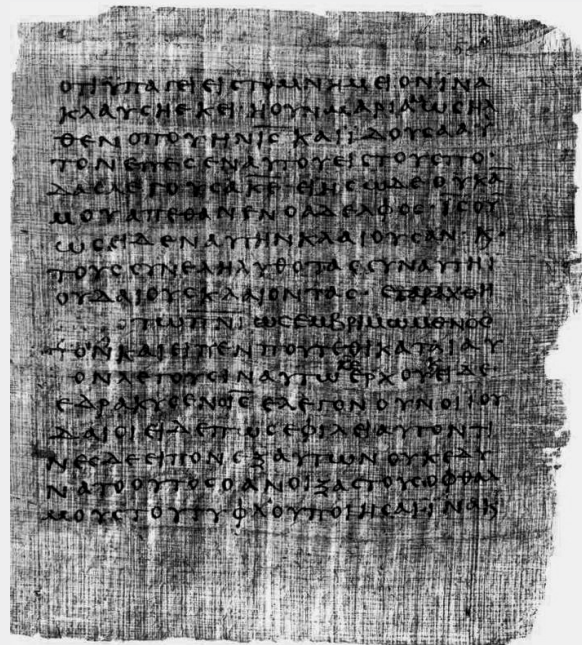 ΟΤΙ ΥΠΑΓΕΙ ΕΙϹ ΤΟ ΜΝΗΜΕΙΟΝ ΙΝΑ
ΚΛΑΥϹΗ ΕΚΕΙ· Η ΟΥΝ ΜΑΡΙΑΜ ΩϹ ΗΛ
ΘΕΝ ΟΠΟΥ ΗΝ Ι̅Ϲ̅ ΚΑΙ ΙΔΟΥϹΑ ΑΥ
ΤΟΝ ΕΠΕϹΕΝ ΑΥΤΟΥ ΕΙϹ ΤΟΥϹ ΠΟ
ΔΑϹ ΛΕΓΟΥϹΑ Κ̅Ε̅ ΕΙ ΗϹ ΩΔΕ ΟΥΚ Α
ΜΟΥ ΑΠΕΘΑΝΕΝ Ο ΑΔΕΛΦΟϹ· Ι̅Ϲ̅ ΟΥ
ΩϹ ΕΙΔΕΝ ΑΥΤΗΝ ΚΛΑΙΟΥϹΑΝ Κ
ΤΟΥϹ ϹΥΝΕΛΗΛΥΘΟΤΑϹ ϹΥΝ ΑΥΤΗ Ι
ΟΥΔΑΙΟΥϹ ΚΛΑΙΟΝΤΑϹ· ΕΤΑΡΑΧΘΗ
ΤΩ Π̅Ν̅Ι̅ ΩϹ ΕΜΒΡΙΜΩΜΕΝΟϹ
ΤΟΝ ΚΑΙ ΕΙΠΕΝ ΠΟΥ ΤΕΘΙΚΑΤΑΙ ΑΥ
ΟΝ ΛΕΓΟΥϹΙΝ ΑΥΤΩ ΕΡΧΟΥ ΕΙΔΕ·
ΕΔΡΑΚΥϹΕΝ Ο Ι̅Ϲ̅ ΕΛΕΓΟΝ ΟΥΝ ΟΙ ΙΟΥ
ΔΑΙΟΙ ΕΙΔΕ ΠΩϹ ΕΦΙΛΕΙ ΑΥΤΟΝ ΤΙ
ΝΕϹ ΔΕ ΕΙΠΟΝ ΕΞ ΑΥΤΩΝ ΟΥΚ ΕΔΥ
ΝΑΤΟ ΟΥΤΟϹ Ο ΑΝΟΙΞΑϹ ΤΟΥϹ ΟΦΘΑΛ
ΜΟΥϹ ΤΟΥ ΤΥΦΛΟΥ ΠΟΙΗϹΑΙ ΙΝΑ Κ